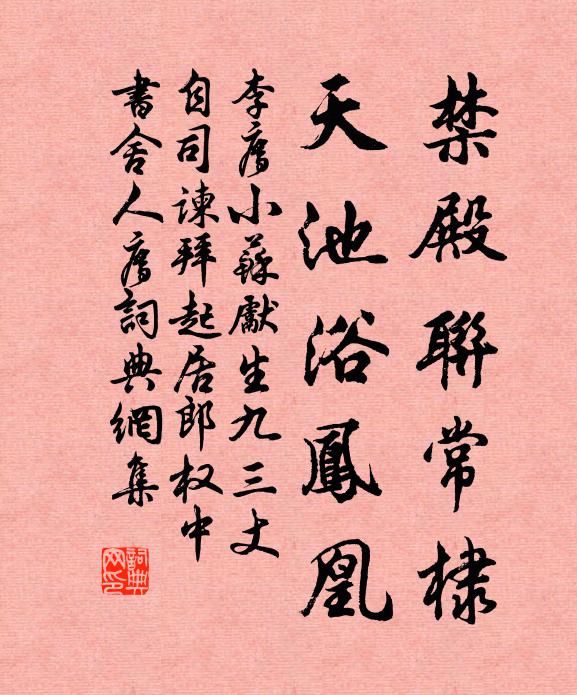 禁殿聯常棣
天池浴鳳凰
李廌小蘇獻生九三丈
自司諫拜起居郎权中
書舍人廌詞典網集
詞典網印